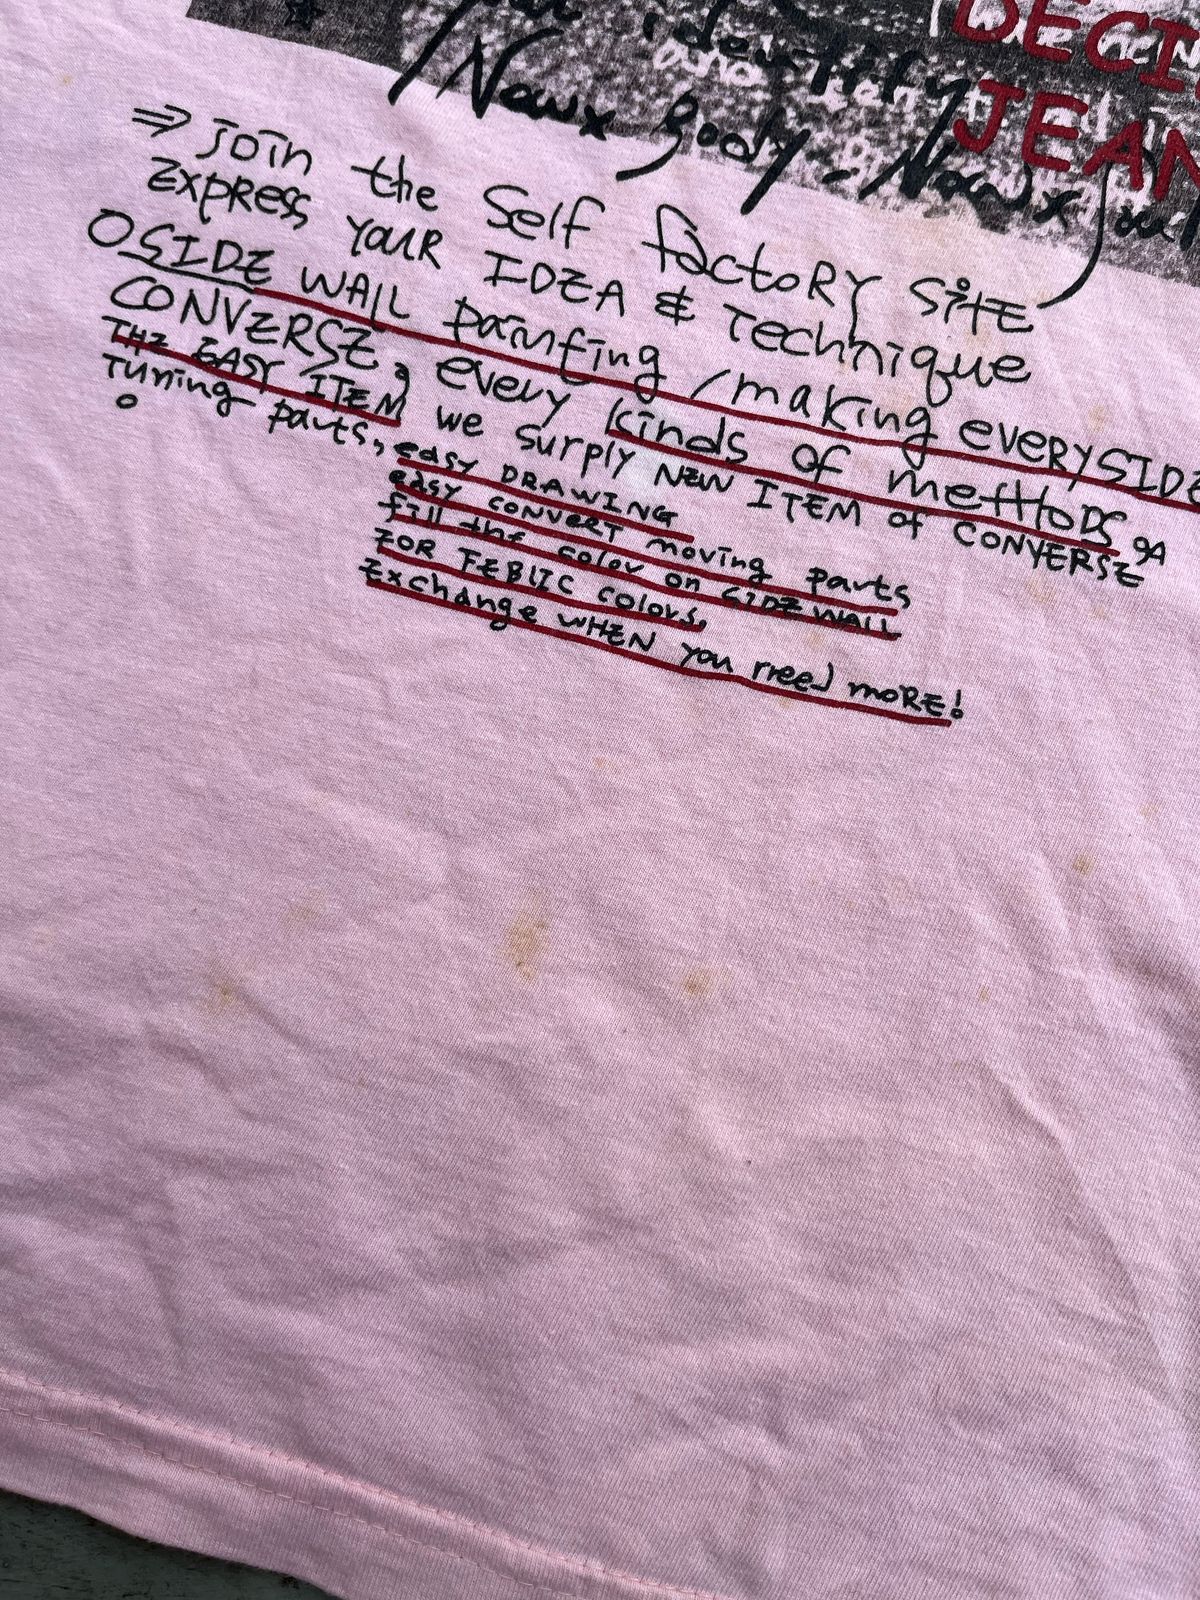 DECI
identify
JEAN
Nowx Body - Nowx
⇒ join the Self factoRY SitE
Express YouR IDEA & Technique
O SIDE WAll painting / making everySIDE
CONVERSE, every kinds of metHoDS
THE EASY ITEM we surply NEW ITEM of CONVERSE
Tuning parts, easy DRAWING
easy CONVERT moving parts
fill the color on SIDE WALL
FOR FEBLIC colors,
Exchange WHEN you need moRE!